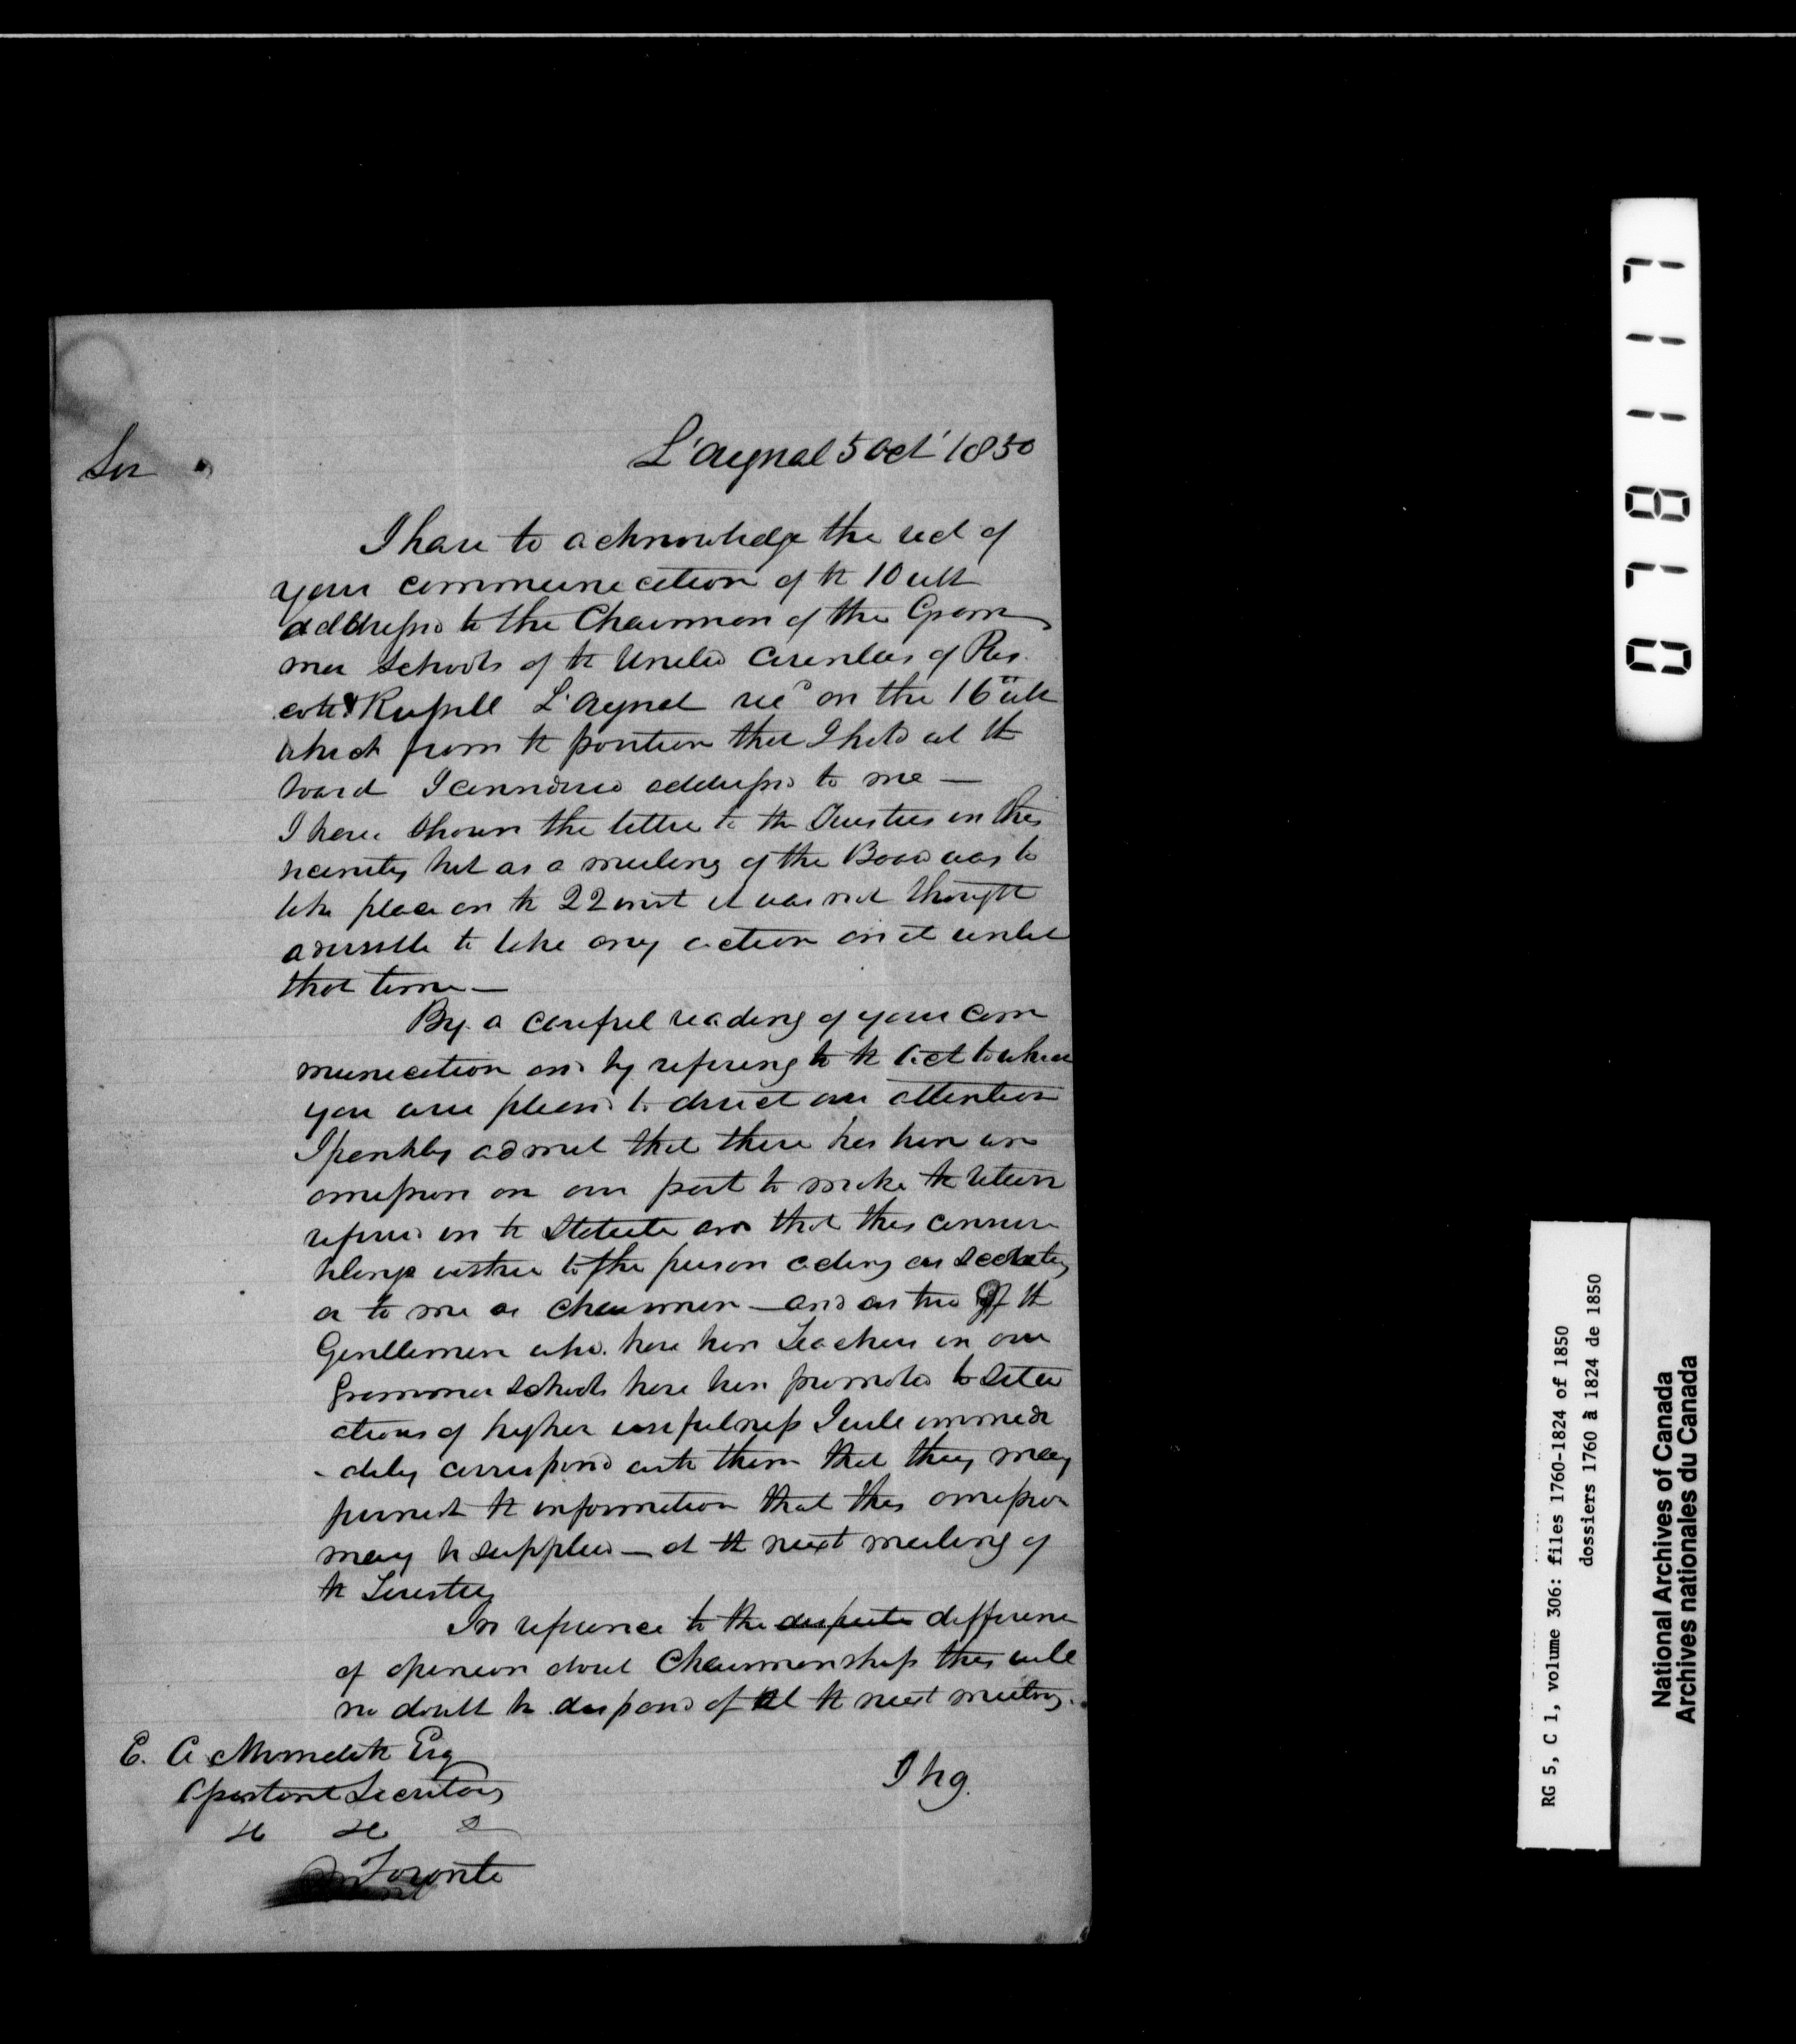 L'Orignal 5 Oct' 1850
Sir
I have to acknowledge the rect of
your communication of th 10 ult
addressed to the Chairman of the Gram
mar Schools of th United Counties of Pres
cott & Russell L'Orignal recd on the 16th ult
which from th position that I hold at th
board I considered addressed to me —
I have shown the letter to the Trustees in this
vicinity but as a meeting of the Board was to
take place on th 22 inst it was not thought
advisable to take any action on it until
that time —
By a careful reading of your com
munication and by refering to th Act to which
you are pleased to direct our attention
I frankly admit that there has been an
omission on our part to make th return
refered in th Statute and that this censure
belongs either to the person acting as Secretary
or to me as Chairman — and as two of th
Gentlemen who have been Teachers in our
Grammar Schools have been promoted to Situ
ations of higher usefulness I will immedi
- ately correspond with them that they may
furnish th information that this omission
may be supplied — at th next meeting of
th Trustees
In reference to the dispute difference
of opinion about Chairmanship this will
no doubt be disposed of at th next meeting.
E. A. Meredith Esq
Assistant Secretary
&c &c &c
Toronto
I h g.
071811117
RG 5, C 1, volume 306: files 1760-1824 of 1850
dossiers 1760 à 1824 de 1850
National Archives of Canada
Archives nationales du Canada